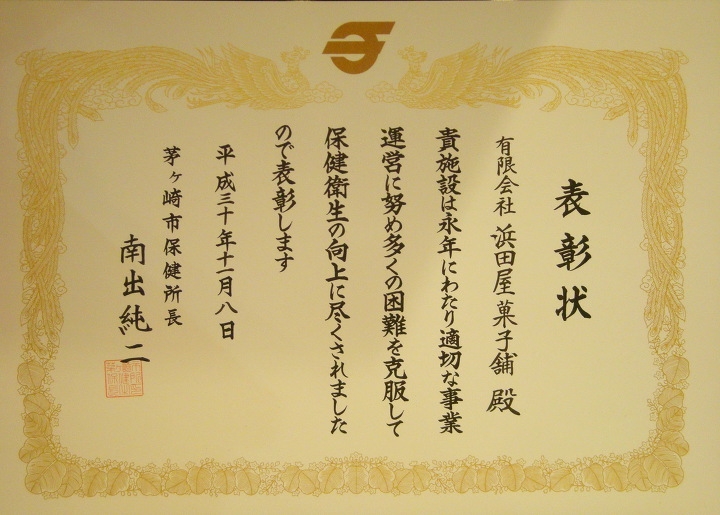 表彰状
有限会社 浜田屋菓子舗 殿
貴施設は永年にわたり適切な事業
運営に努め多くの困難を克服して
保健衛生の向上に尽くされました
ので表彰します
平成三十年十一月八日
茅ヶ崎市保健所長
南出純二